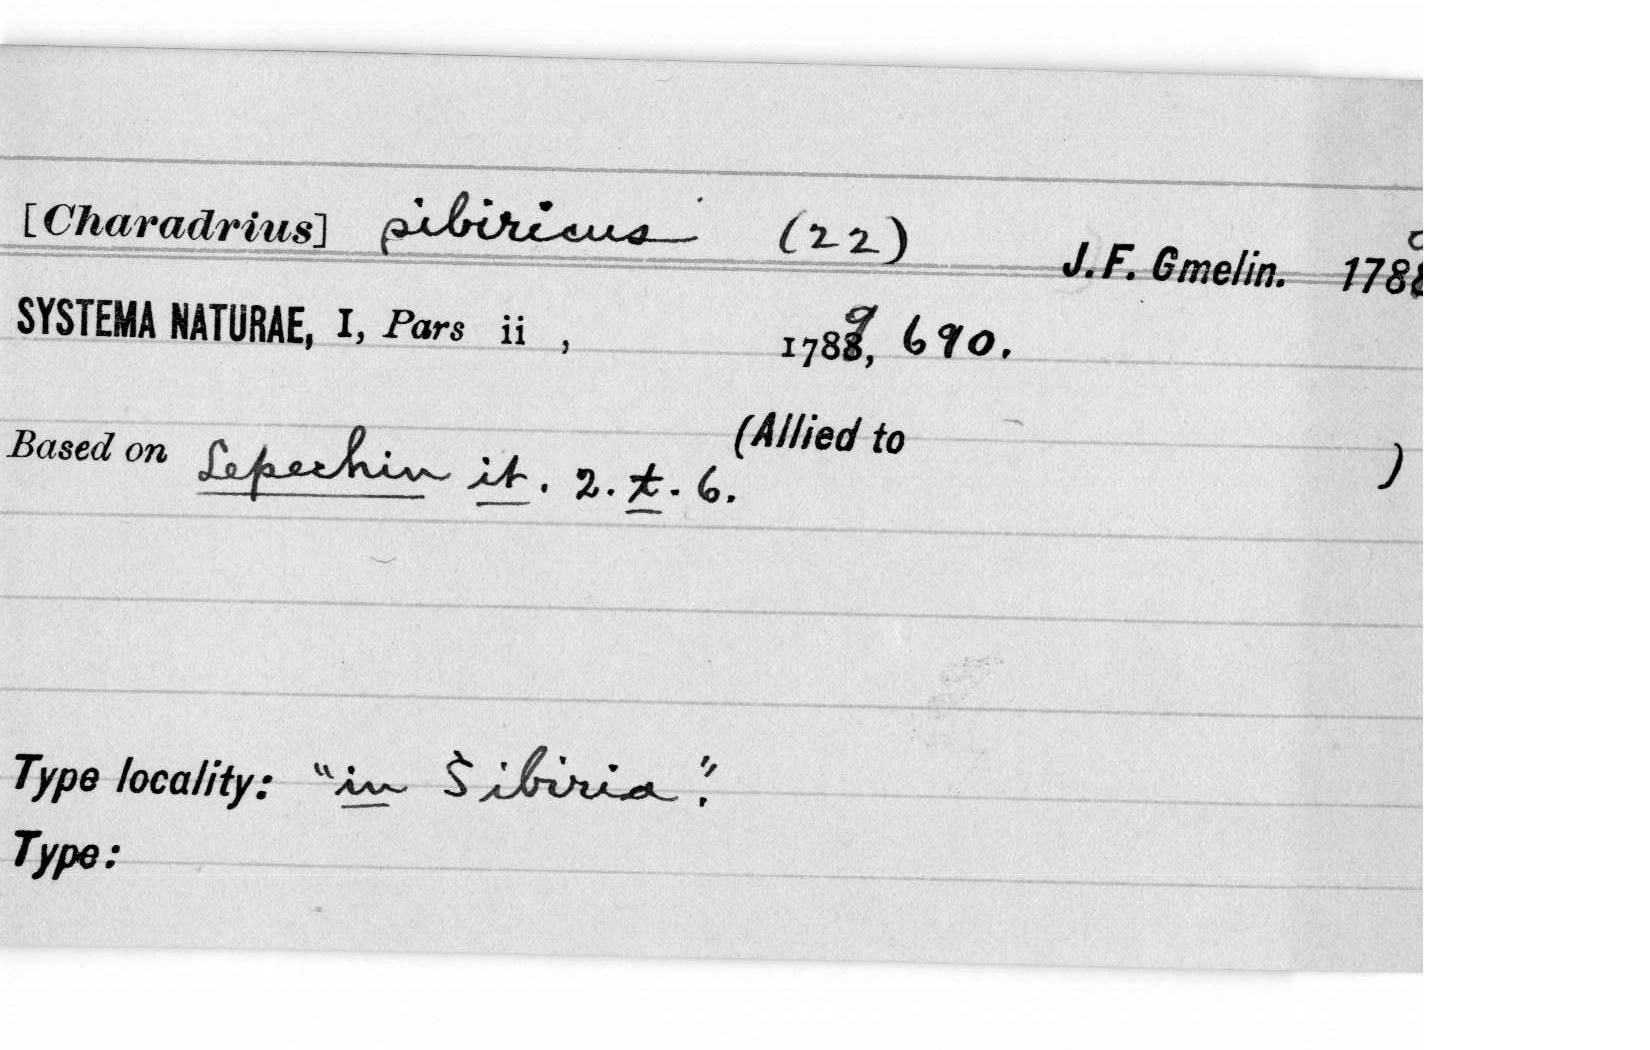 [Charadrius] sibiricus (22) J. F. Gmelin. 1789
SYSTEMA NATURAE, I, Pars ii , 1789, 690.
Based on Lepechin it. 2. t. 6. (Allied to )
Type locality: "in Sibiria".
Type: